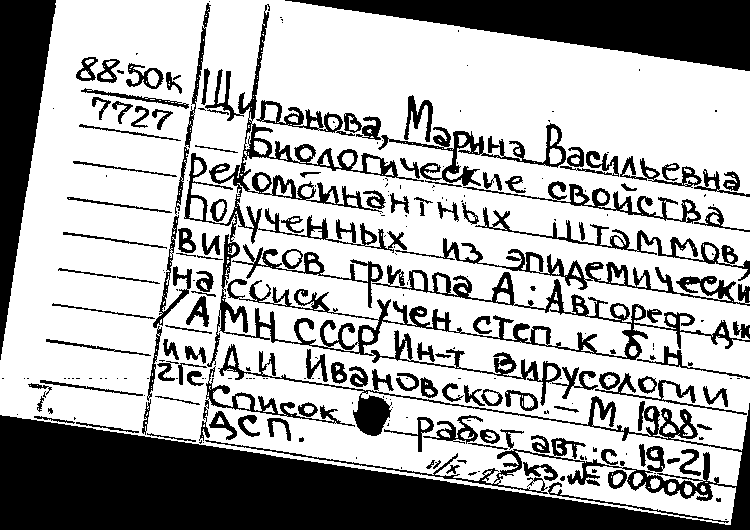 88-50к
7727
Щипанова, Марина Васильевна
Биологические свойства
рекомбинантных штаммов,
полученных из эпидемически
вирусов гриппа А: Автореф. ди
на соиск. учен. степ. к.б.н.
/АМН СССР, Ин-т вирусологии
им. Д.И. Ивановского. – М., 1988.-
21с
Список работ авт.: с. 19-21.
7.
ДСП. Экз. № 000009.